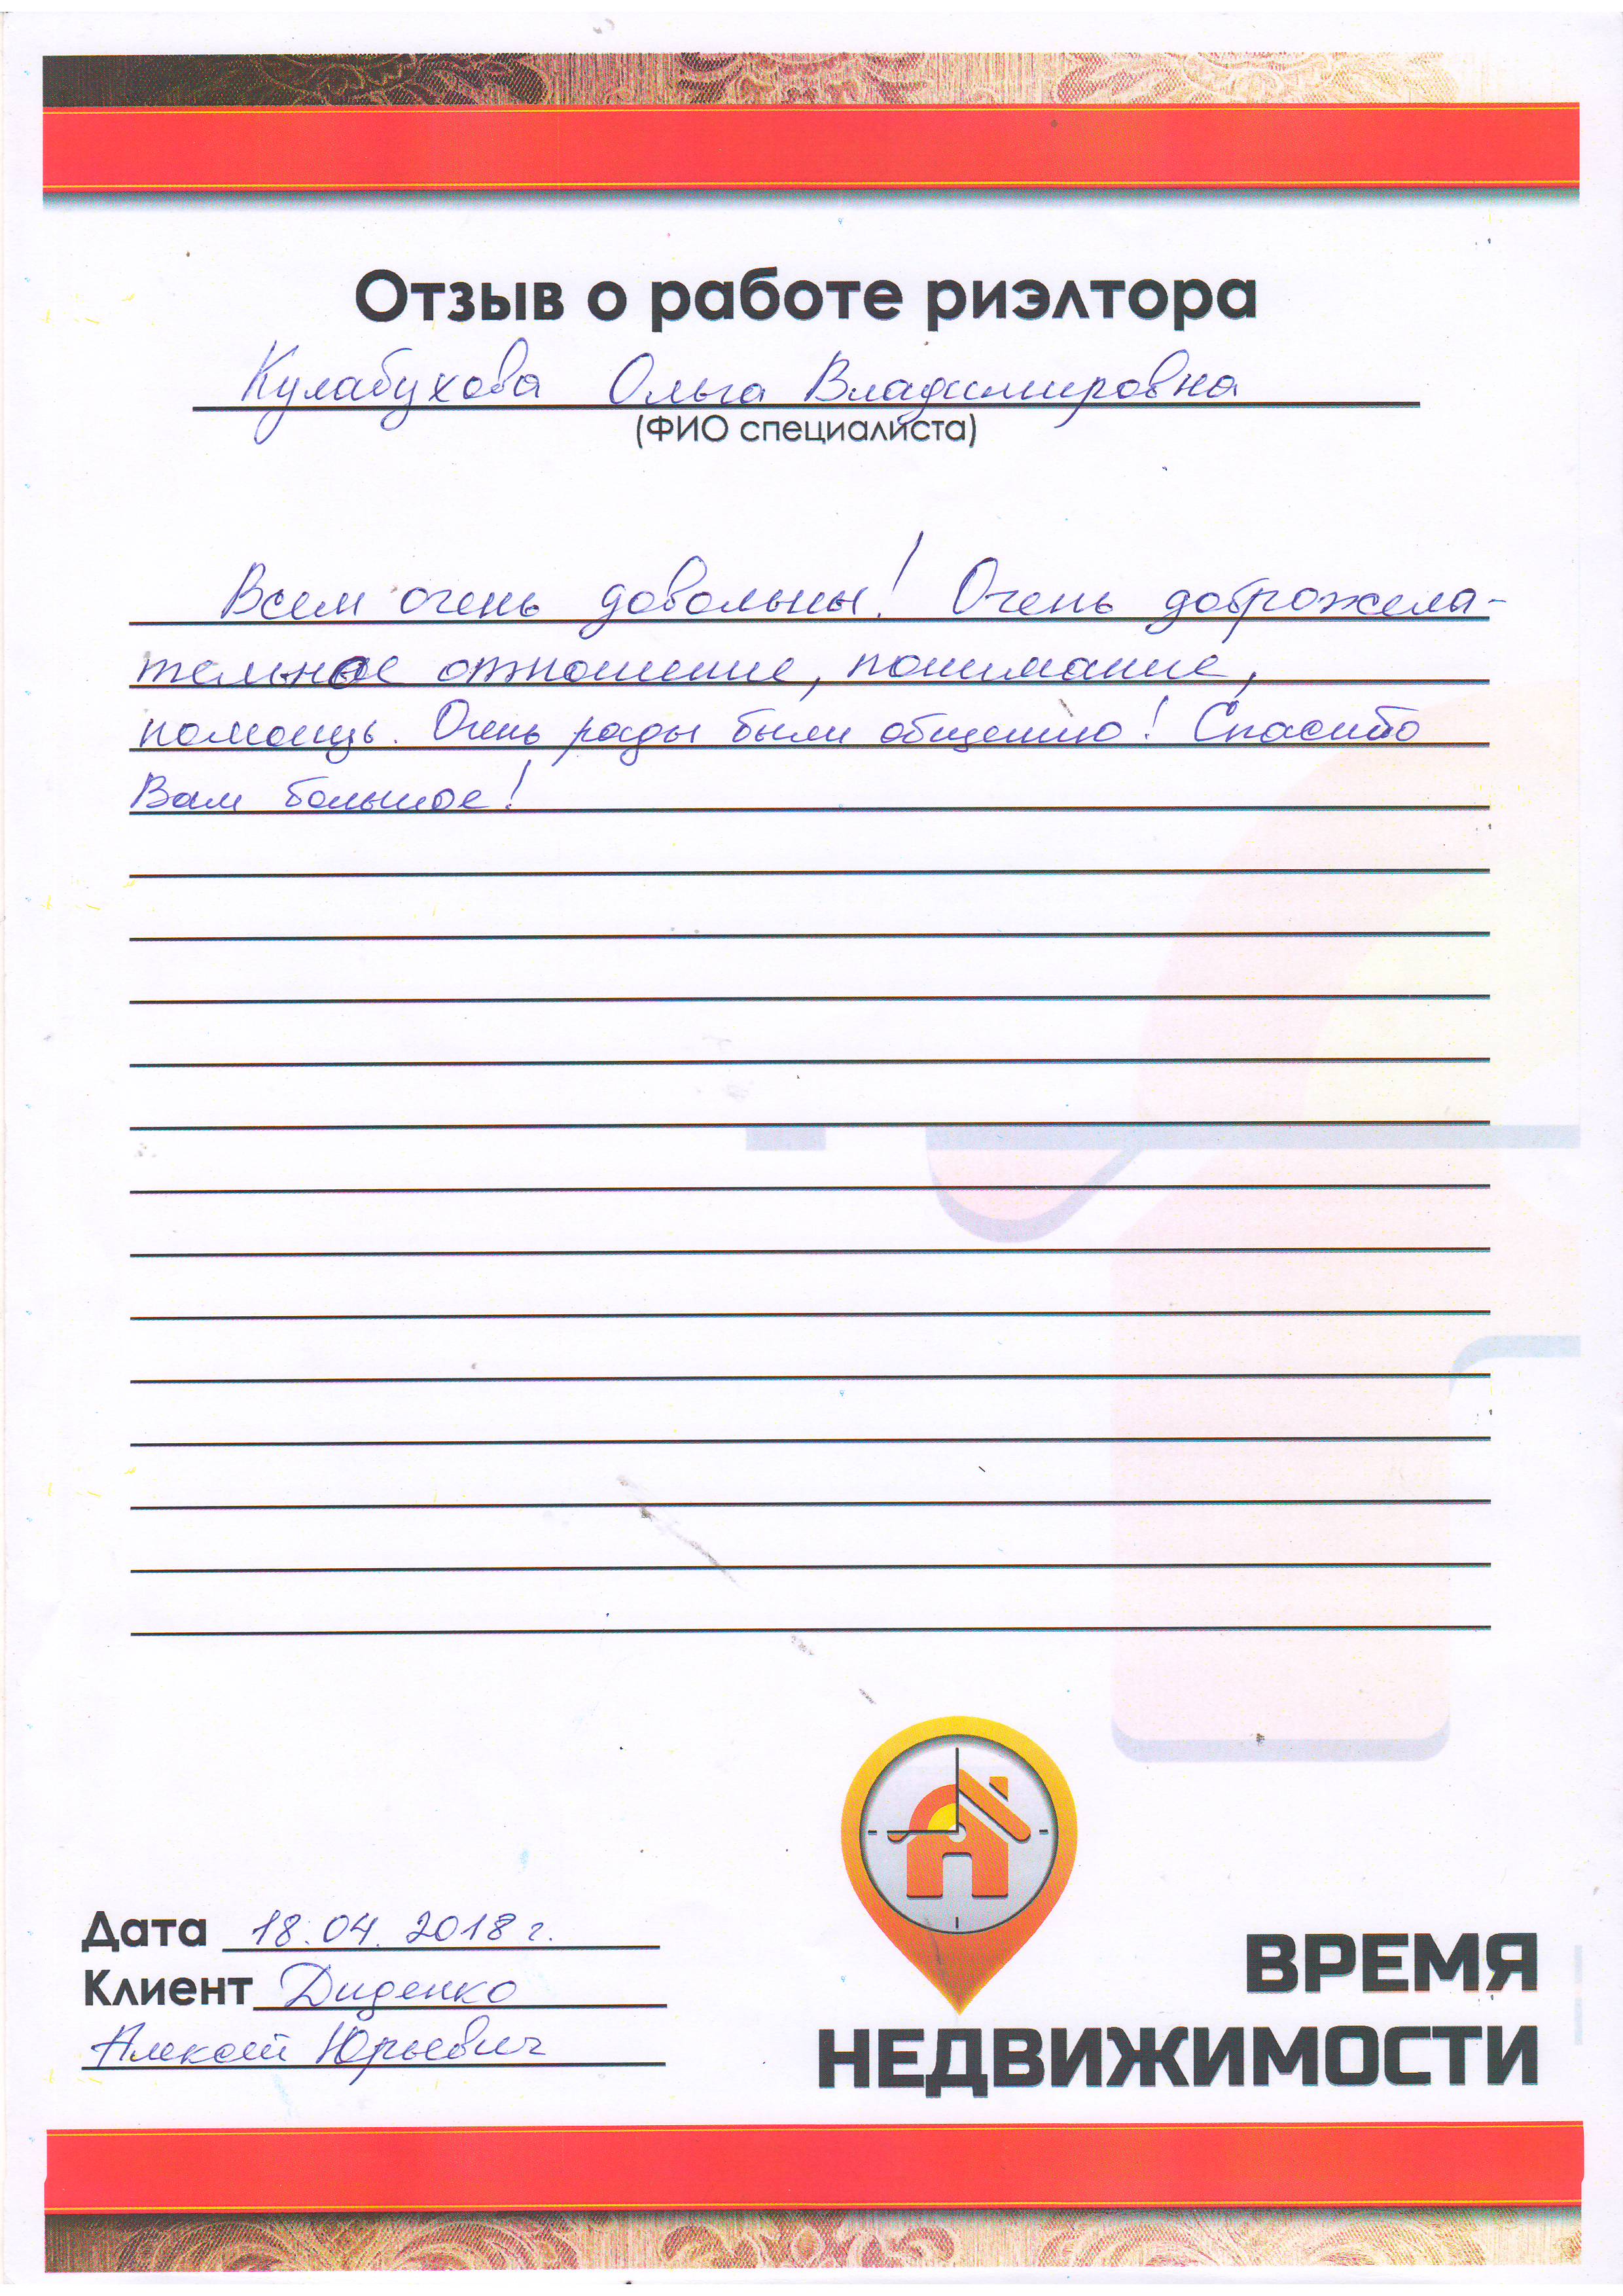 Отзыв о работе риэлтора
Кулабухова Ольга Владимировна
(ФИО специалиста)
Всем очень довольны! Очень доброжела-
тельное отношение, понимание,
помощь. Очень рады были общению! Спасибо
Вам большое!
Дата 18.04.2018 г.
Клиент Диденко
Алексей Юрьевич
ВРЕМЯ
НЕДВИЖИМОСТИ